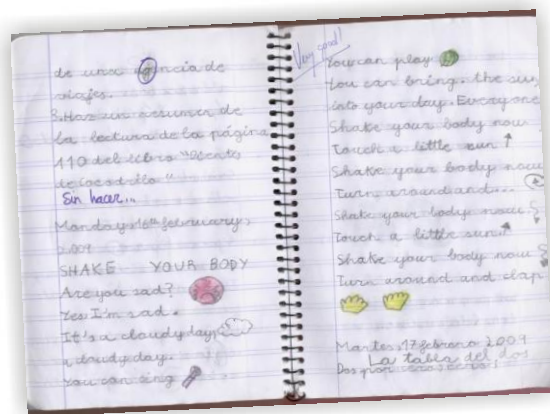 de una agencia de
viajes.
3. Haz un resumen de
la lectura de la página
110 del libro "Diente
de Cocodrilo"
Sin hacer...
Monday, 16th february,
2.009
SHAKE YOUR BODY
Are you sad?
Yes I'm sad.
It's a cloudy day,
a cloudy day.
You can sing
Very good!
You can play
You can bring the sun
into your day. Everyone
Shake your body now
Touch a little sun
Shake your body now
Turn around and...
Shake your body now
Touch a little sun
Shake your body now
Turn around and clap
Martes, 17 febrero 2009
La tabla del dos
Dos por cero cero!